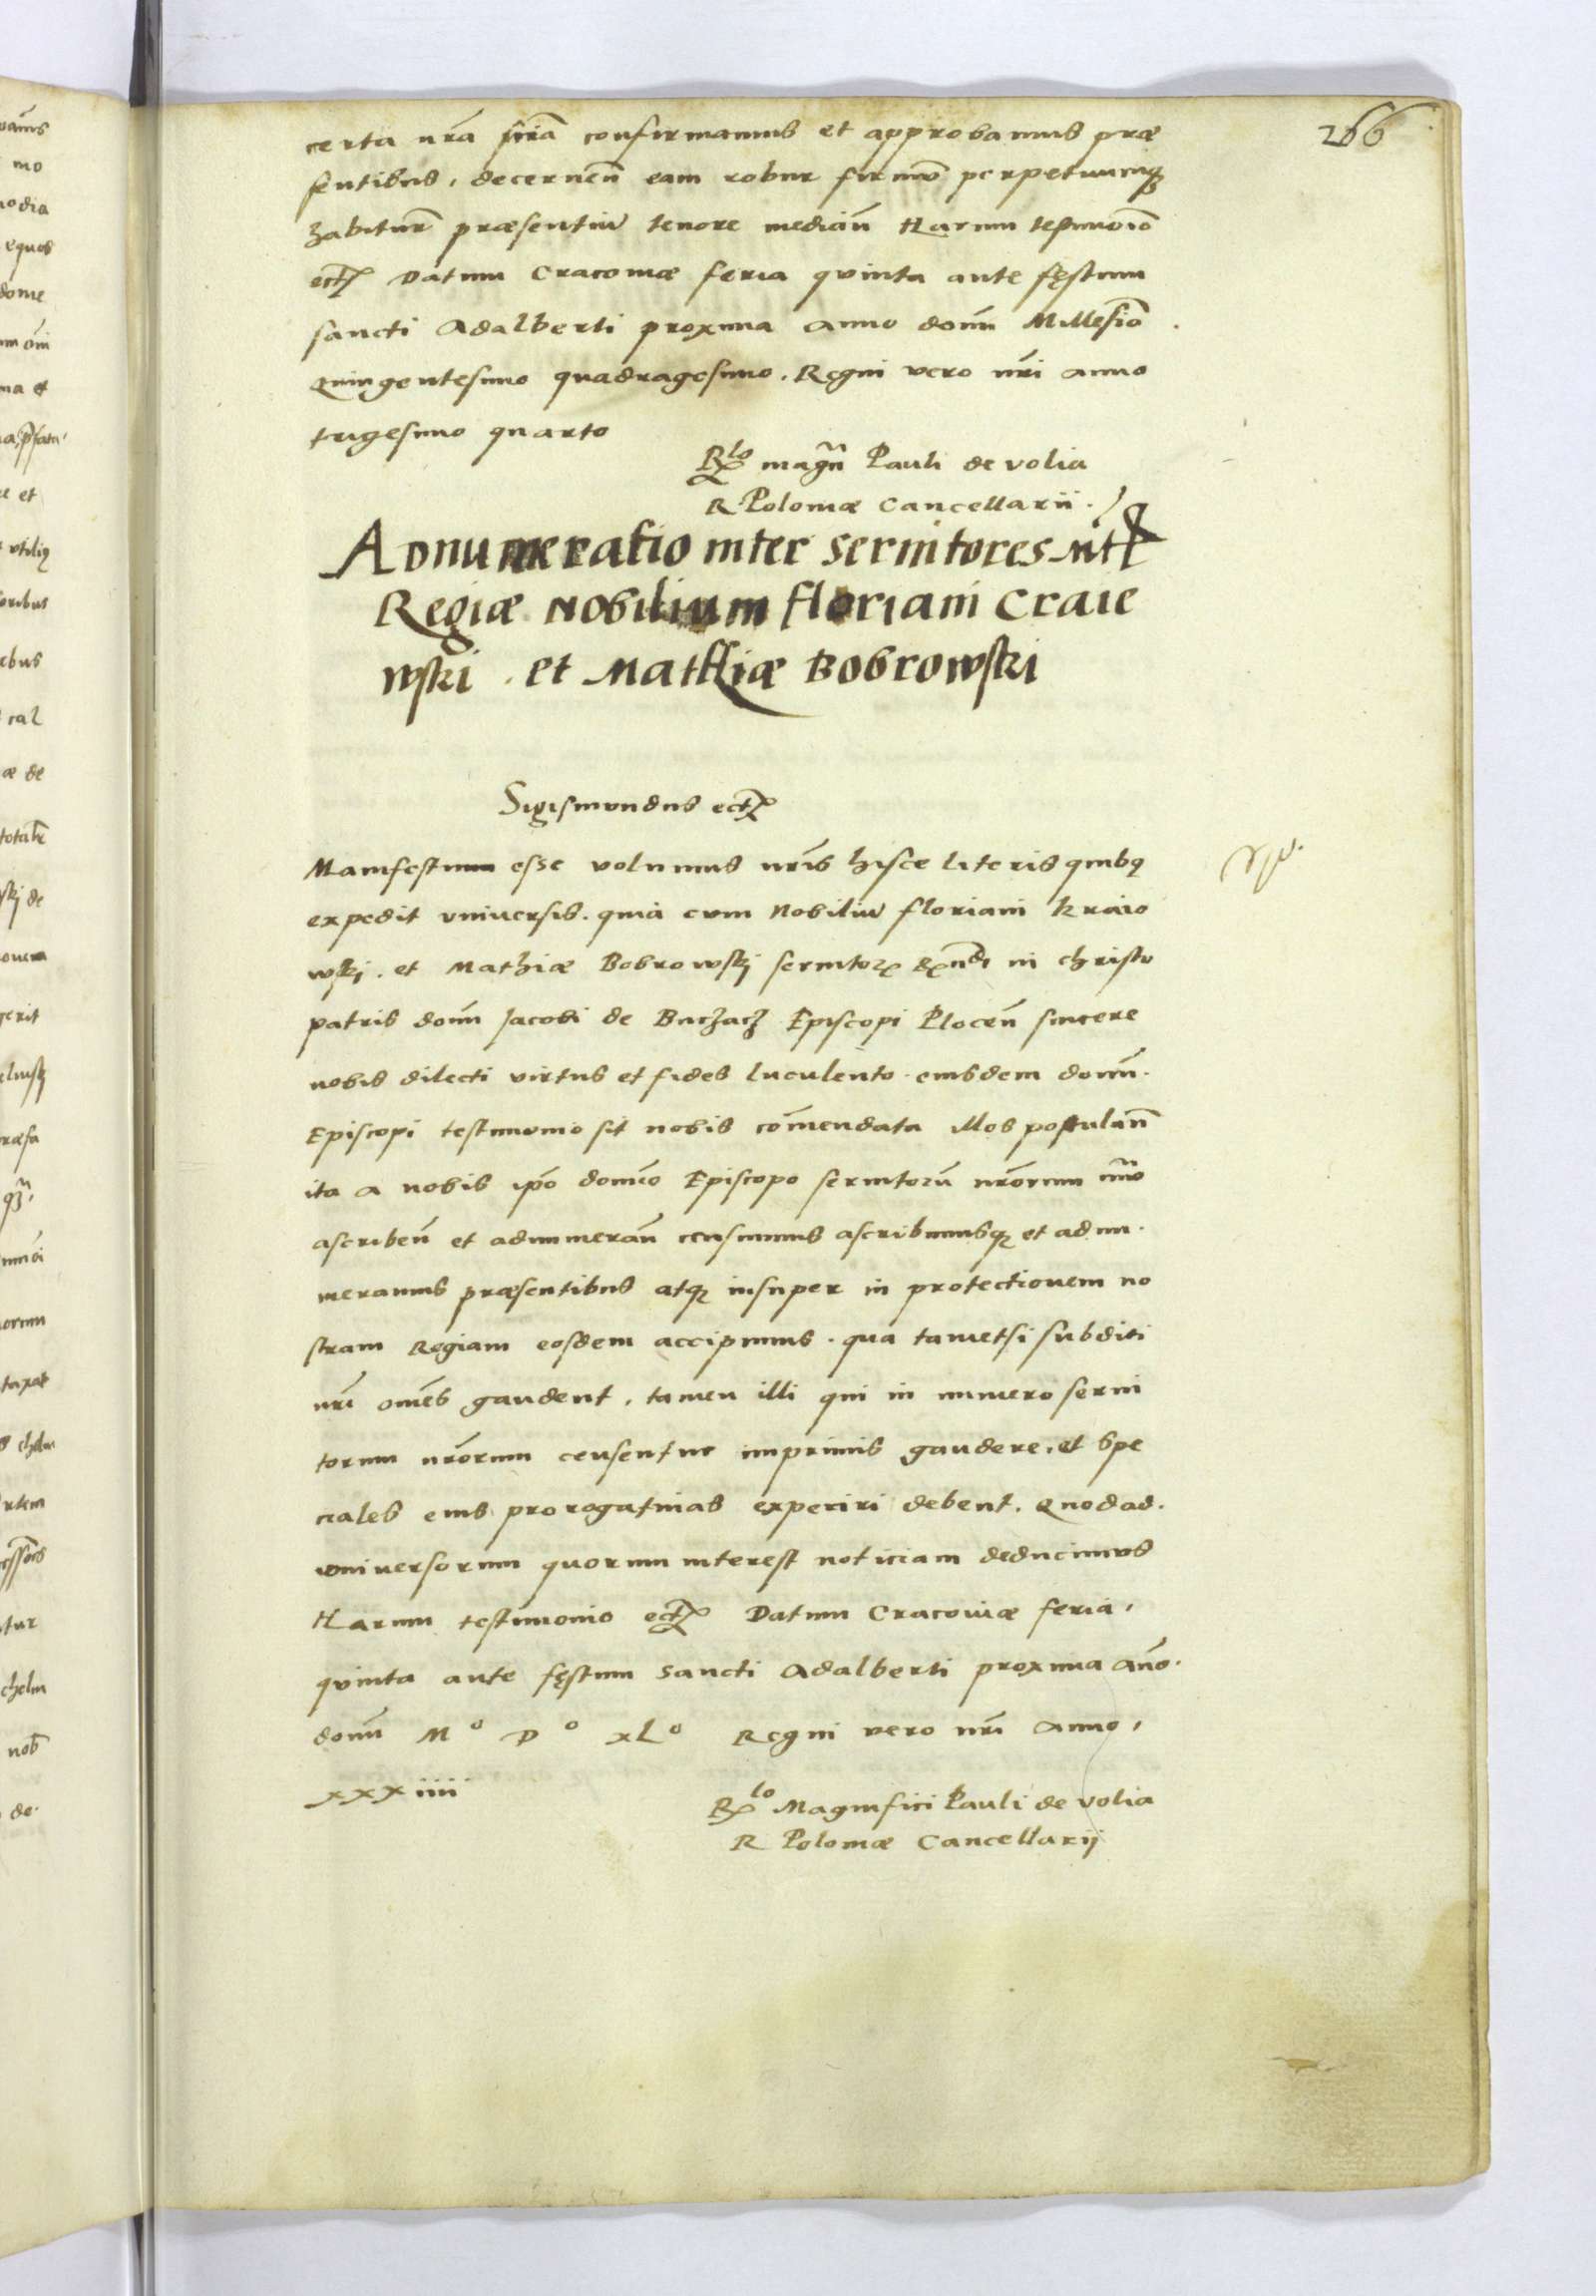 266
certa nr̃a sciẽa confirmamus et approbamus præ
sentibus, decernen̄ eam robur firmũ perpetuumq̢
habitur̃ præsentiũ tenore median̄ Harum testimoĩo
ect̢ Datum Cracoviæ feria quinta ante fęstum
sancti Adalberti proxima anno domĩ Millesĩo
quingentesimo quadragesimo. Regni vero nr̃i anno
trigesimo quarto
Rlo magñ Pauli de volia
R Poloniæ Cancellarii.
Adnumeratio inter servitores mtis
Regiæ Nobilium floriani Craie
wski . et Mathiæ Bobrowski
Sigismundus ect̢
Manifestum esse volumus nr̃is hisce literis quibq̢
expedit universis. quia cum Nobiliũ floriani Kraio
wski. et Mathiæ Bobrowskj servitor̢ Rndi in christo
patris domĩ Jacobi de Buczacz Episcopi Plocen̄ sincere
nobis dilecti virtus et fides luculento eiusdem domĩ.
Episcopi testimonio sit nobis cõmendata illos postulan̄
ita a nobis ip̃o domĩo Episcopo servitorũ nr̃orum nũo
ascriben̄ et adnumeran̄ censuimus ascribimusq̢ et adnu.
meramus præsentibus atq̢ insuper in protectionem no
stram Regiam eosdem accipimus. qua tametsi subditi
nr̃i om̃es gaudent, tamen illi qui in numero servi
torum nr̃orum censentur imprimis gaudere. et spe
ciales eius prorogativas experiri debent. Quod ad.
universorum quorum interest noticiam deducimus
Harum testimonio ect̢ Datum Cracoviæ feria,
quinta ante fęstum sancti Adalberti proxima Añо.
domĩ Mo Do xLo Regni vero nr̃i Anno,
xxxiiii
Rlo Magnifici Pauli de volia
R Poloniæ Cancellarij